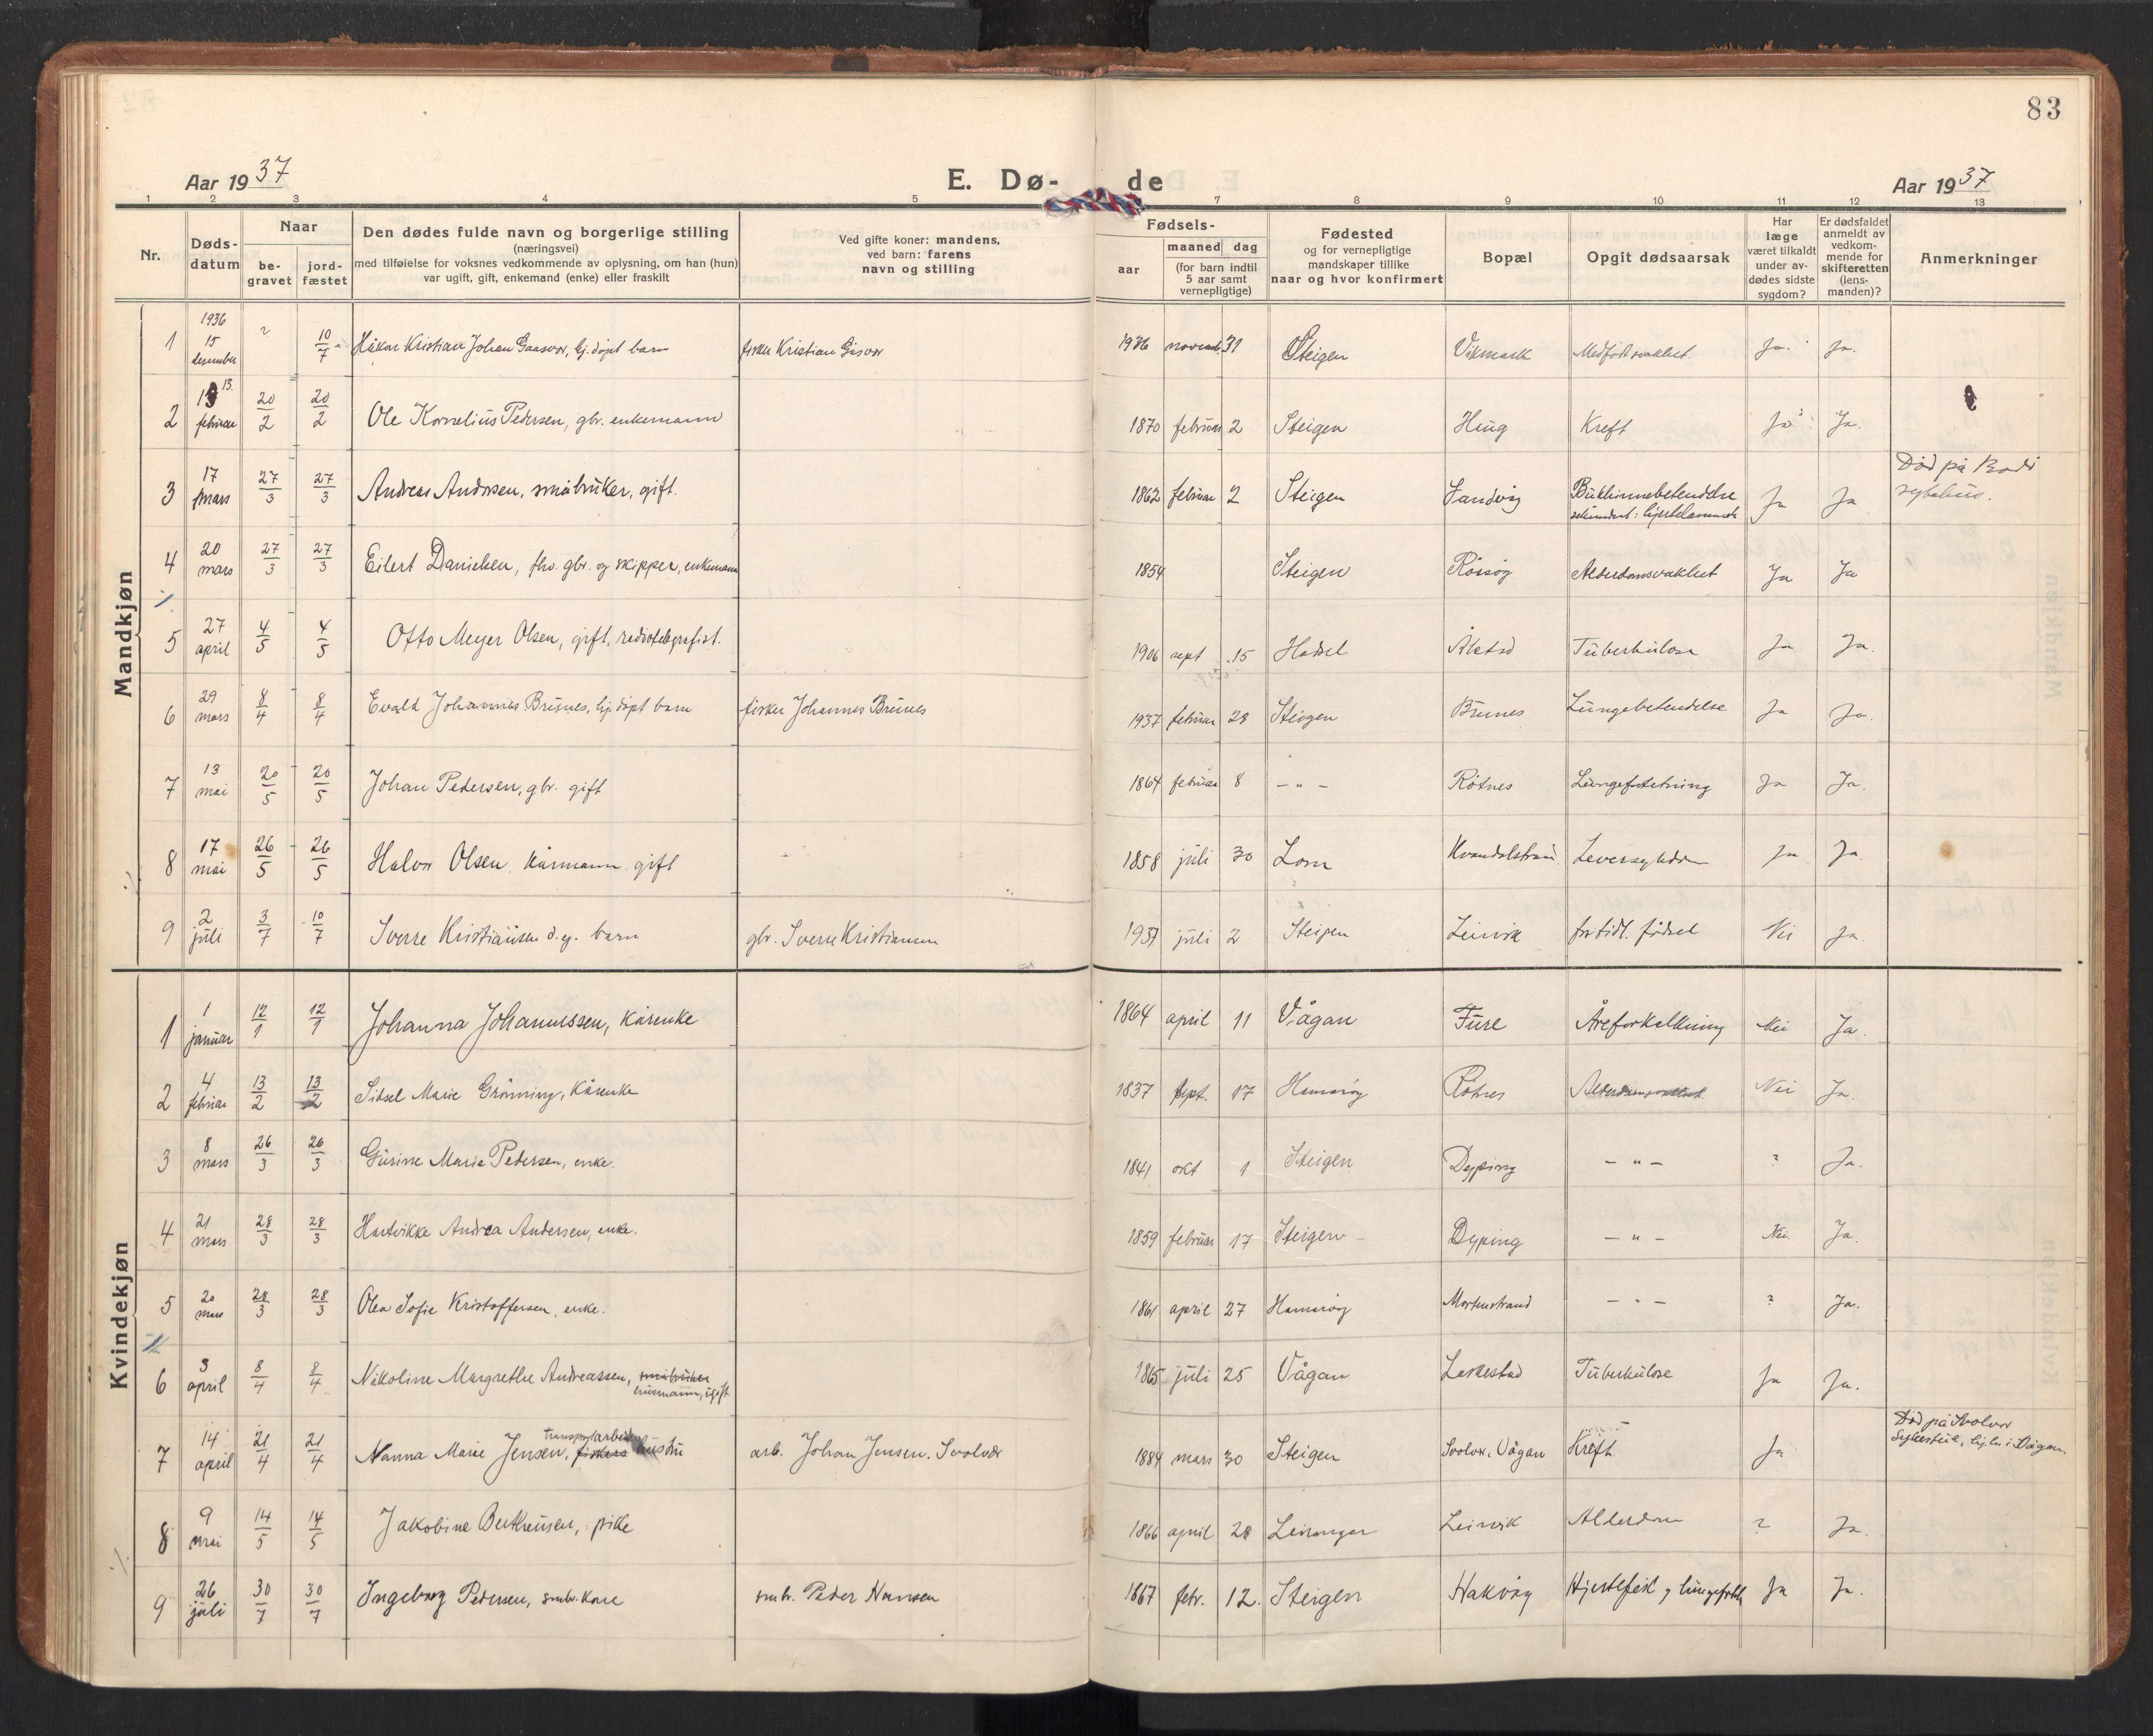 83
Aar 1937
E. Dø-
de
Aar 1937
1 2 3 4 5 7 8 9 10 11 12 13
Nr.
Døds-
datum
Naar
be-
gravet
jord-
fæstet
Den dødes fulde navn og borgerlige stilling
(næringsvei)
med tilføielse for voksnes vedkommende av oplysning, om han (hun)
var ugift, gift, enkemand (enke) eller fraskilt
Ved gifte koner: mandens,
ved barn: farens
navn og stilling
Fødsels-
aar
maaned dag
(for barn indtil
5 aar samt
vernepligtige)
Fødested
og for vernepligtige
mandskaper tillike
naar og hvor konfirmert
Bopæl
Opgit dødsaarsak
Har
læge
været tilkaldt
under av-
dødes sidste
sygdom?
Er dødsfaldet
anmeldt av
vedkom-
mende for
skifteretten
(lens-
manden)?
Anmerkninger
Mandkjøn
1 1936 15 desember ? 10/7 Håkon Kristian Johan Gaasvær, hj.døpt barn fisker Kristian Gåsvær 1936 31 Steigen Vikmark Medfødt svakhet Ja. Ja.
2 13. februar 20/2 20/2 Ole Kornelius Pedersen, gbr. enkemann 1870 februar 2 Steigen Haug Kreft Ja Ja.
3 17 mars 27/3 27/3 Andreas Andersen, småbruker, gift. 1862 februar 2 Steigen Sandvåg Bukhinnebetendelse Ja Ja Død på Bodø
sykehus.
4 20 mars 27/3 27/3 Eilert Danielsen, fhv. gbr. og skipper, enkemann 1854 Steigen Røssøy Alderdomsvakhet Ja Ja
5 27 april 4/5 4/5 Otto Meyer Olsen, gift, radiotelegrafist. 1906 sept 15 Hadsel Ålstad Tuberkulose Ja Ja.
6 29 mars 8/4 8/4 Evald Johannes Brunes, hj.døpt barn fisker Johannes Brunes 1937 februar 28 Steigen Brunes Lungebetendelse Ja Ja.
7 13 mai 20/5 20/5 Johan Pedersen, gbr. gift 1864 februar 8 - " - Røtnes Ja Ja.
8 17 mai 26/5 26/5 Halvor Olsen kårmann gift 1858 juli 30 Lom Kvandalstrand Leversykdom Ja Ja.
9 2 juli 3/7 10/7 Sverre Kristiansen d.y. barn gbr. Sverre Kristiansen 1937 juli 2 Steigen Leirvik for tidl. fødsel Nei Ja
Kvindekjøn
1 1 januar 12/1 12/1 Johanna Johannessen, kårenke 1864 april 11 Vågan Fure Åreforkalkning Nei Ja.
2 4 februar 13/2 13/2 Sitsel Marie Grønning, kårenke 1837 sept. 17 Hamarøy Røtnes Alderdomsvakhet Nei Ja.
3 8 mars 26/3 26/3 Gurine Marie Pedersen, enke. 1841 okt 1 Steigen Dyping - " - ? Ja.
4 21 mars 28/3 28/3 Hartvikke Andrea Andersen, enke. 1859 februar 17 Steigen Dyping - " - Nei Ja.
5 20 mars 28/3 28/3 Olea Sofie Kristoffersen, enke. 1861 april 27 Hamarøy Mortenstrand - " - ? Ja.
6 3 april 8/4 8/4 Nikoline Margrethe Andreassen, småbruker
1865 juli 25 Vågan Laskestad Tuberkulose Ja Ja.
7 14 april 21/4 21/4 Nanna Marie Jensen, fiskers hustru arb. Johan Jensen. Svolvær 1884 mars 30 Steigen Svolvær, Vågan Kreft Ja Død på Svolvær
8 9 mai 14/5 14/5 Jakobine Bertheusen, pike 1866 april 28 Leiranger Leirvik Alderdom ? Ja.
9 26 juli 30/7 30/7 Ingeborg Pedersen, smbr. kone smbr. Peder Hansen 1867 febr. 12. Steigen Hakvåg Hjertefeil Ja Ja.